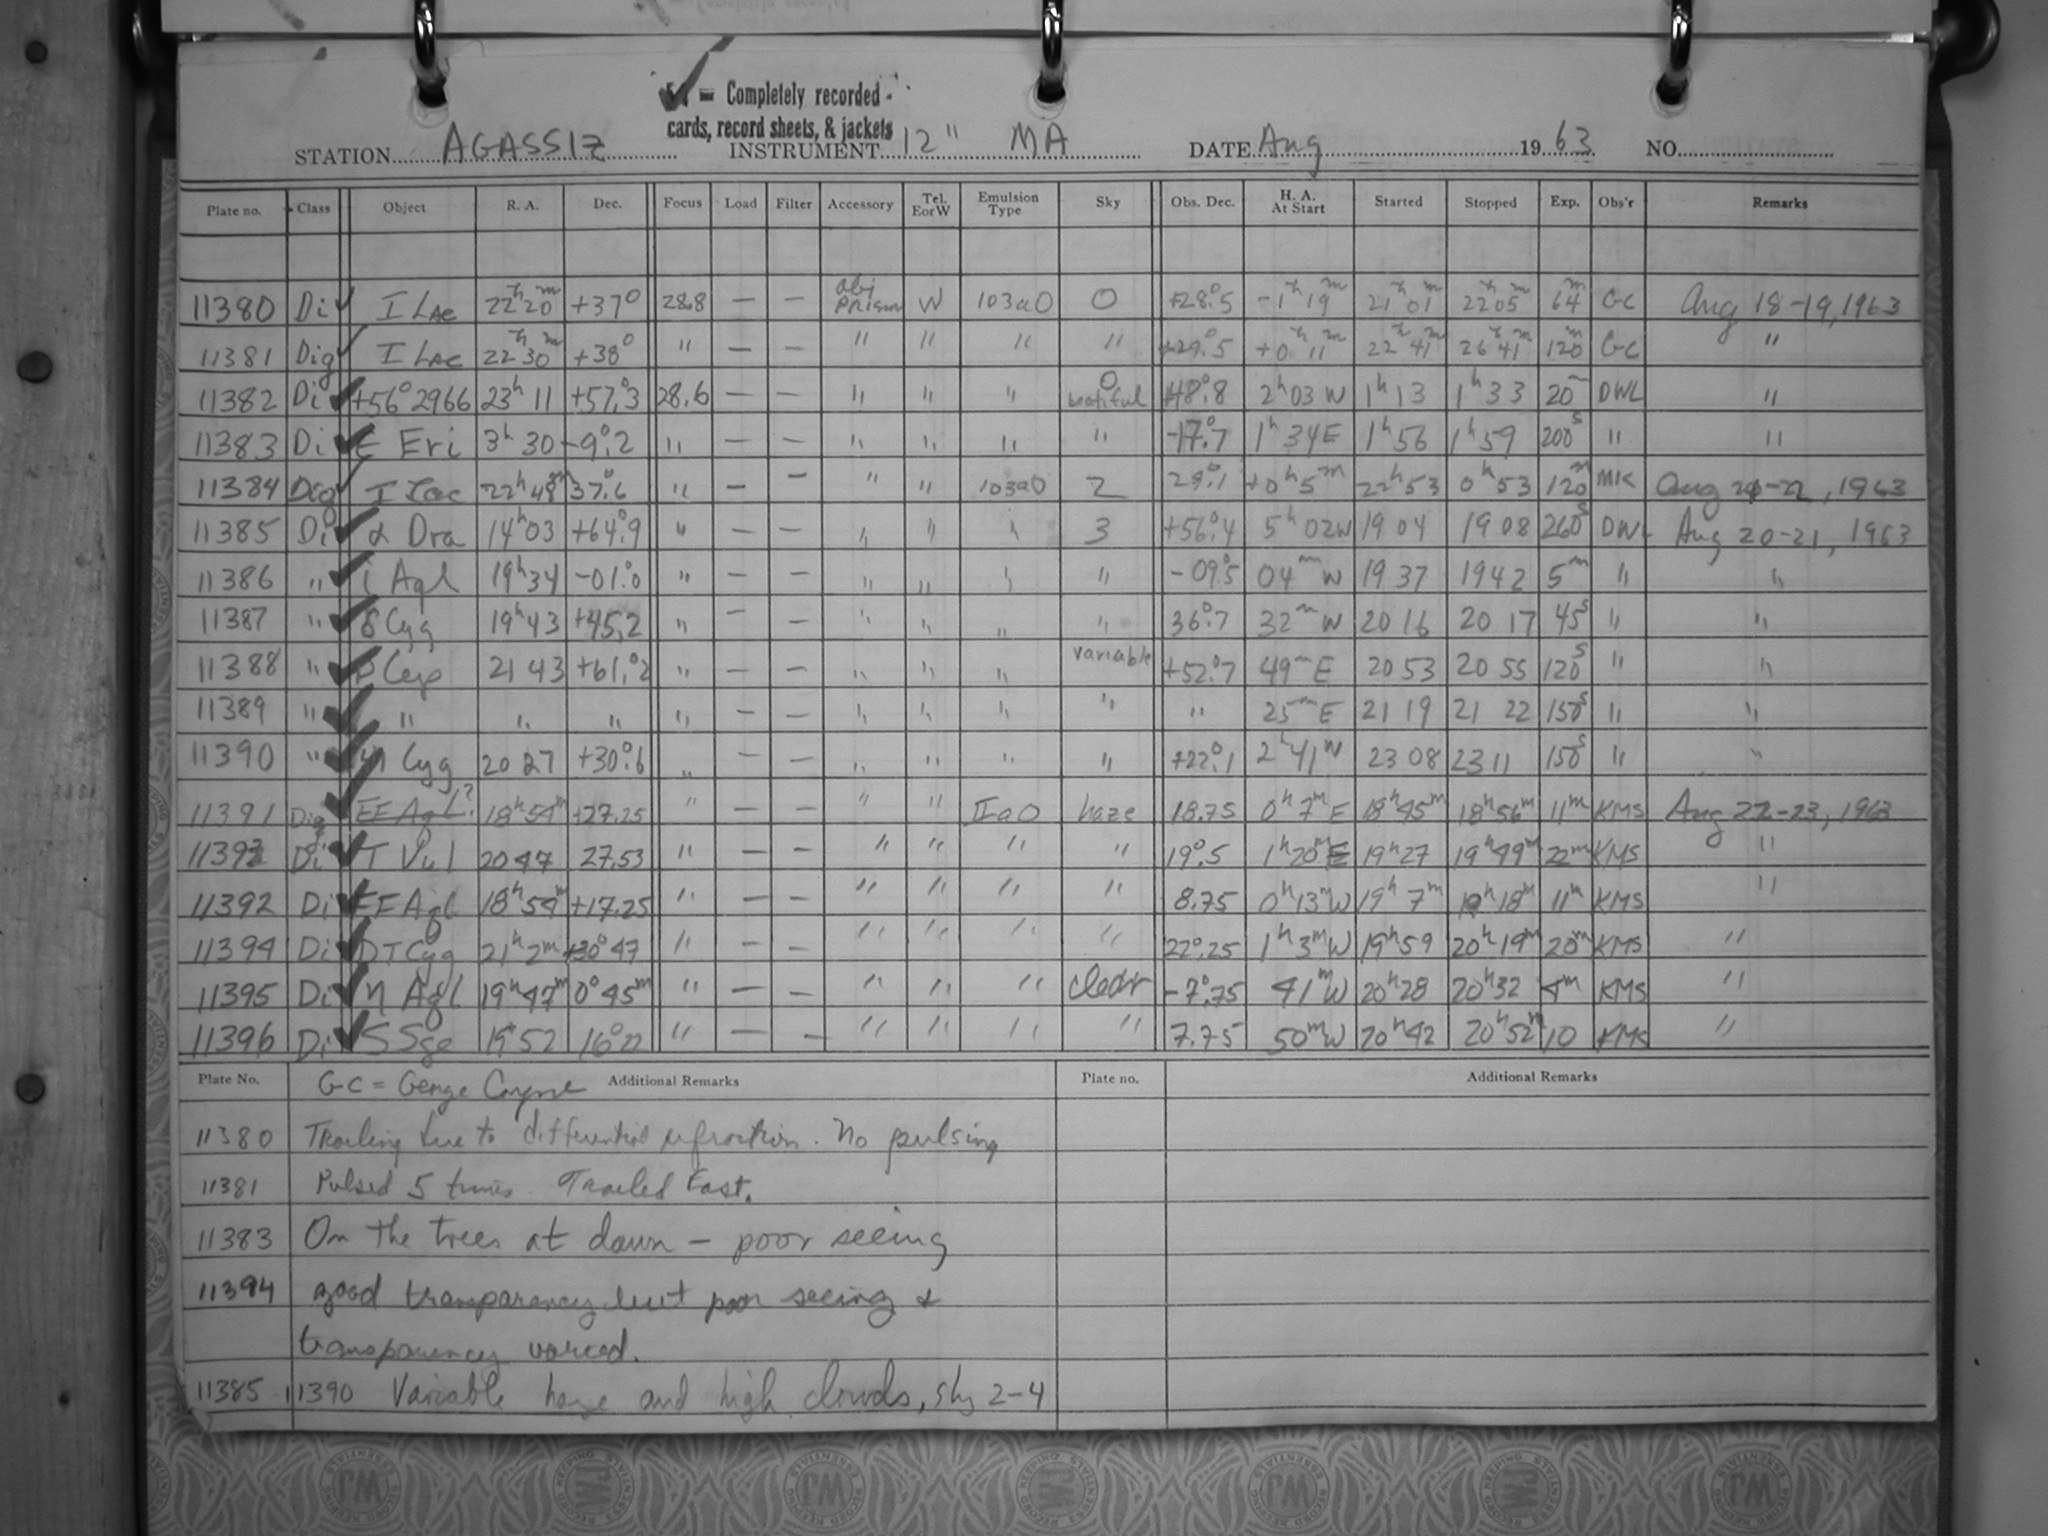 = Completely recorded -
cards, record sheets, & jackets
STATION AGASSIZ INSTRUMENT 12" MA DATE Aug 1963 NO.
Plate no. Class Object R. A. Dec. Focus Load Filter Accessory Tel. E or W Emulsion Type Sky Obs. Dec. H. A. At Start Started Stopped Exp. Obs'r Remarks
11380 Di ✓ I Lac 22h 20m +37° 28.8 — — obj Prism W 103aO 0 +28°.5 -1h 19m 21h 01m 22h 05m 64m GC Aug 18-19, 1963
11381 Dig ✓ I Lac 22h 30m +38° " — — " " " " +29°.5 +0h 11m 22h 41m 26h 41m 120m GC "
11382 Di ✓ +56° 2966 23h 11 +57°.3 28.6 — — " " " 0 +48°.8 2h 03 W 1h 13 1h 33 20m DWL "
11383 Di ✓ ε Eri 3h 30 -9°.2 " — — " " " " -17°.7 1h 34 E 1h 56 1h 59 200s " "
11384 Dig ✓ I Lac 22h 48m 37°.6 " — — " " 103aO 2 29°.1 +0h 5m 22h 53 0h 53 120m MK Aug 21-22, 1963
11385 Di ✓ α Dra 14h 03 +64°.9 " — — " " " 3 +56°.4 5h 02 W 19 04 19 08 260s DWL Aug 20-21, 1963
11386 " ✓ i Aql 19h 34 -01°.0 " — — " " " " -09°.5 04m W 19 37 19 42 5m " "
11387 " ✓ δ Cyg 19h 43 +45.2 " — " " " " 36°.7 32m W 20 16 20 17 45s " "
11388 " ✓ Cep 21 43 +61°.2 " — — " " " variable +52°.7 49m E 20 53 20 55 120s " "
11389 " ✓ " " " " — — " " " " " 25m E 21 19 21 22 150s " "
11390 " ✓ Cyg 20 27 +30°.6 " — — " " " " +22°.1 2h 41 W 23 08 23 11 150s " "
11391 Dig ✓ EE Aql? 18h 54m +27.25 " — — " " IIaO haze 18.75 0h 7m E 18h 45m 18h 56m 11m KMS Aug 22-23, 1963
11393 Di ✓ T Vul 20 47 27.53 " — — " " " " 19°.5 1h 20m E 19h 27 19h 49m 22m KMS "
11392 Di ✓ EE Aql 18h 59m +17.25 " — — " " " " 8.75 0h 13m W 19h 7m 19h 18m 11m KMS "
11394 Di ✓ DT Cyg 21h 2m +30° 47 " — — " " " " 22°.25 1h 3m W 19h 59 20h 19m 20m KMS "
11395 Di ✓ η Aql 19h 47m 0° 45m " — — " " " clear -7°.75 41m W 20h 28 20h 32 4m KMS "
11396 Di ✓ S Sge 19h 52 16° 22 " — — " " " " 7.75 50m W 20h 42 20h 52m 10 KMS "
Plate No. GC = George Coyne Additional Remarks Plate no. Additional Remarks
11380 Trailing due to differential refraction. No pulsing
11381 Pulsed 5 times Trailed East.
11383 On the trees at dawn — poor seeing
11394 good transparency but poor seeing &
transparency varied.
11385 11390 Variable haze and high clouds, sky 2-4